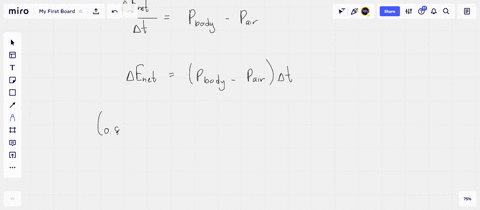 miro My First Board Share
net/Δt = P_body - P_air
ΔE_net = (P_body - P_air)Δt
(0.8
75%